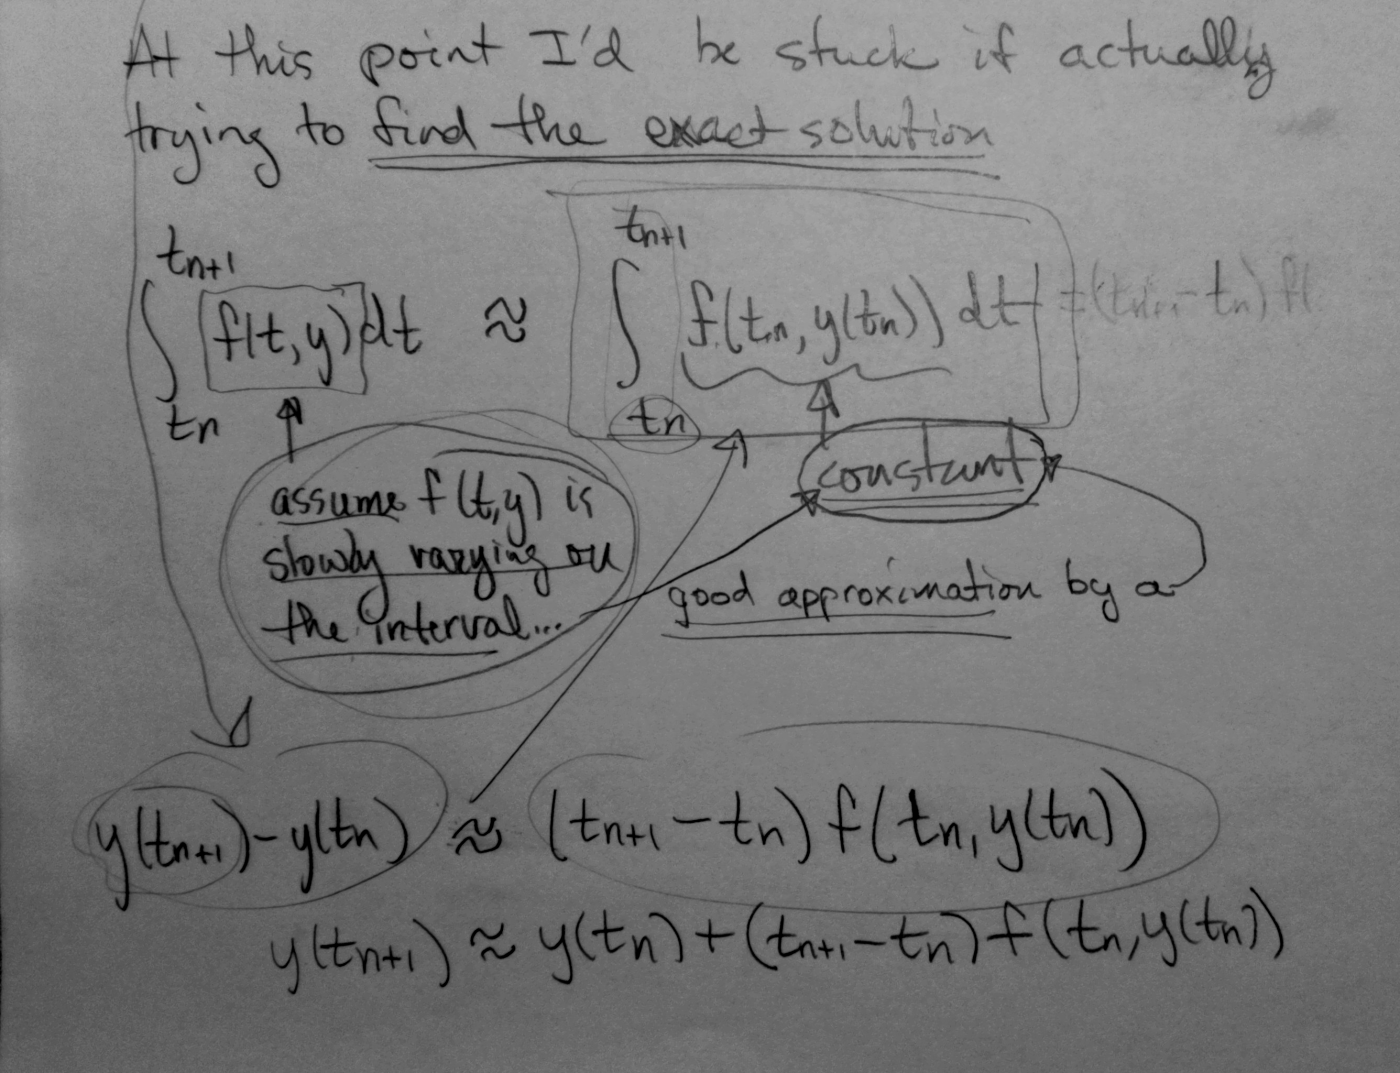 At this point I'd be stuck if actually
trying to find the exact solution
∫_{tn}^{tn+1} f(t,y) dt ≈ ∫_{tn}^{tn+1} f(tn, y(tn)) dt = (tn+1 - tn) f(
constant
assume f(t,y) is
slowly varying on
the interval...
good approximation by a
y(tn+1) - y(tn) ≈ (tn+1 - tn) f(tn, y(tn))
y(tn+1) ≈ y(tn) + (tn+1 - tn) f(tn, y(tn))